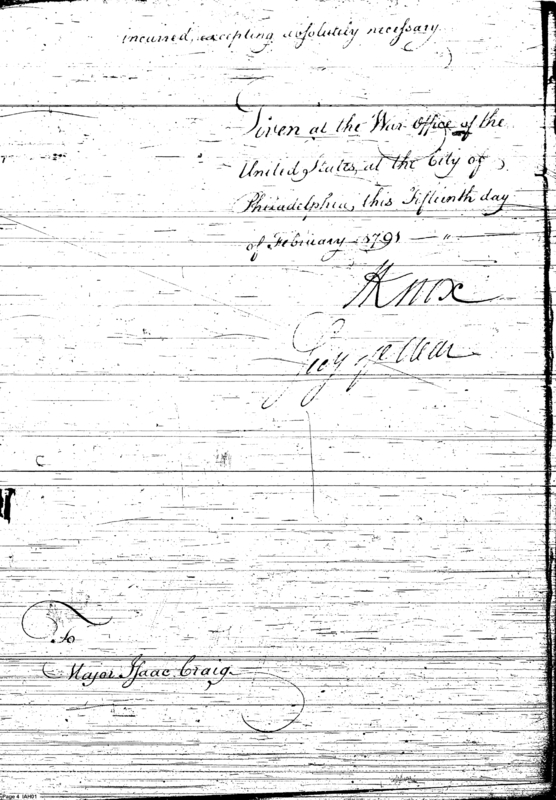 incurred, excepting absolutely necessary.
Given at the War Office of the
United States, at the City of
Philadelphia, this Fifteenth day
of February 1791 — " —
HKnox
Secy of War
To
Major Isaac Craig.
Page 4 IAH01